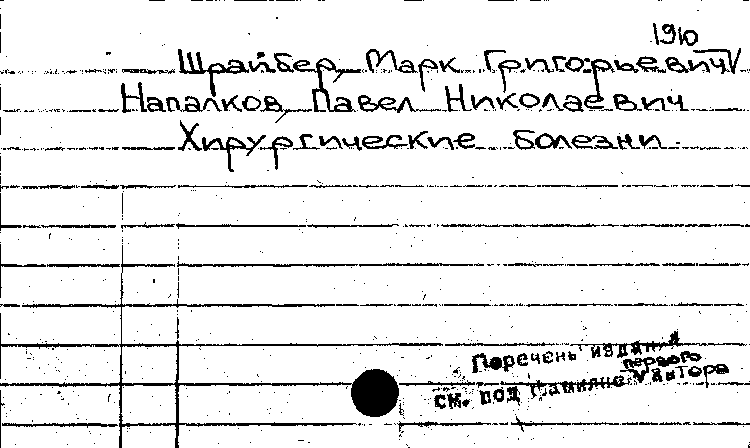 1910
Шрайбер, Марк Григорьевич
Напалков, Павел Николаевич
Хирургические болезни.
Перечень изданий
первого
см. под фамилией автора